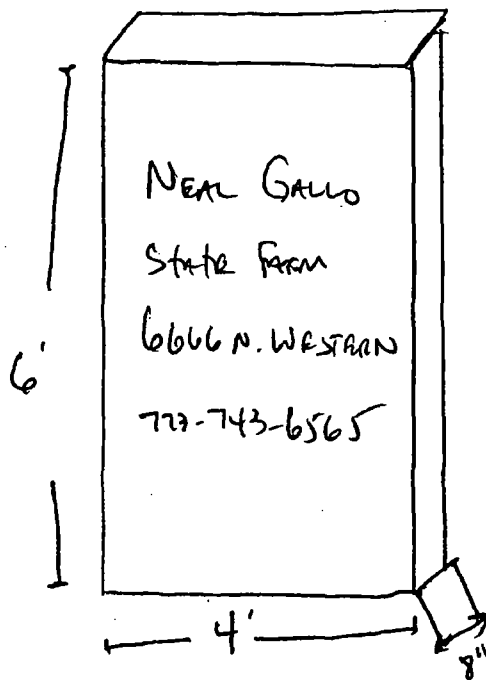 NEAL GALLO
STATE FARM
6666 N. WESTERN
773-743-6565
6'
4'
8"